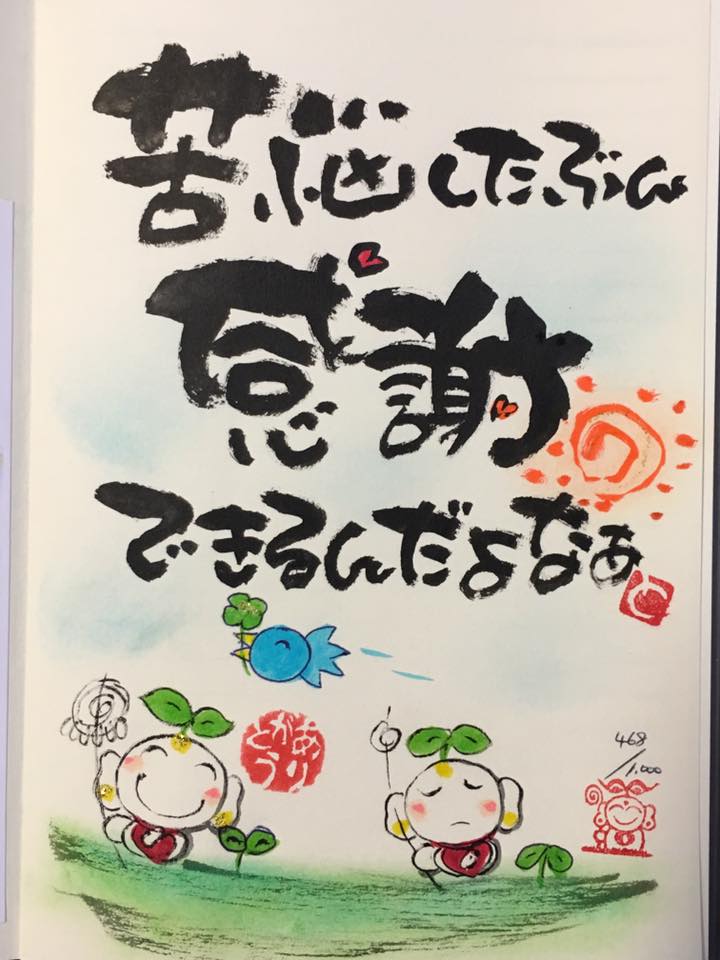 苦悩したぶん
感謝
できるんだよなぁ
468
/1,000